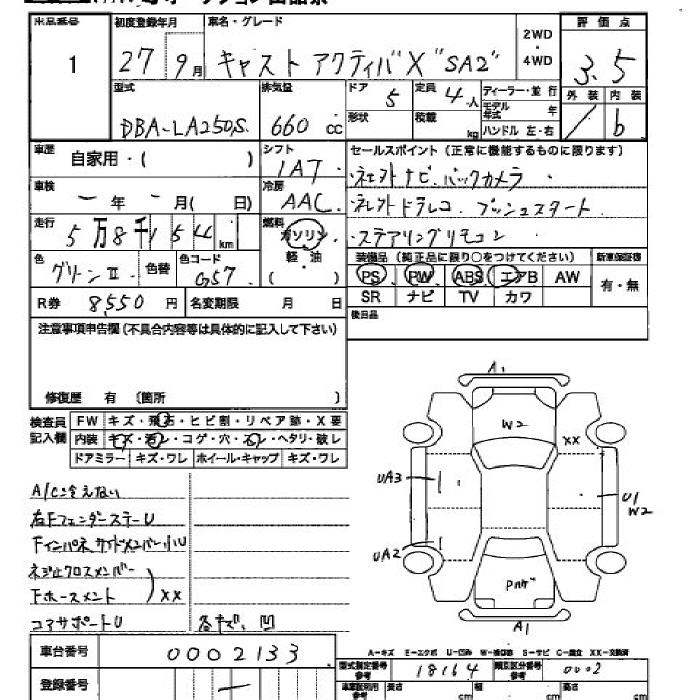 出品番号
1
初度登録年月
27 9月
車名・グレード
キャスト アクティバ X "SA2"
2WD
・
4WD
評価点
3.5
外装 内装
/ b
型式
DBA-LA250S
排気量
660 cc
ドア
5
定員
4人
形状
積載
kg
ディーラー・並行
モデル年式 年
ハンドル 左・右
車歴
自家用・( )
シフト
IAT
セールスポイント (正常に機能するものに限ります)
・ネジ外ナビ バックカメラ
・ネジ外ドラレコ プッシュスタート
・ステアリングリモコン
車検
ー 年 ー 月( 日)
冷房
AAC
走行
5万8千154km
燃料
ガソリン
軽・油
( )
色
グリーンII
色替
色コード
G57
装備品 (純正品に限り○をつけてください)
PS PW ABS エアB AW
SR ナビ TV カワ
新車保証書
有・無
R券 8,550 円
名変期限 月 日
後日品
注意事項申告欄 (不具合内容等は具体的に記入して下さい)
修復歴 有 〔箇所 〕
検査員記入欄
FW キズ・飛石・ヒビ割・リペア跡・X要
内装 キズ・汚レ・コゲ・穴・スレ・ヘタリ・破レ
ドアミラー キズ・ワレ ホイール・キャップ キズ・ワレ
A/C冷えない
右FフェンダーステーU
Fインパネサイドメンバー小U
ネジ止クロスメンバー
Fホースメント
) XX
コアサポートU
各キズ、凹
A1
W2
XX
UA3
U1
W2
UA2
Pハゲ
A1
A-キズ E-エクボ U-凹み W-補修跡 S-サビ C-腐食 XX-交換済
車台番号
0002133
型式指定番号
参考
18164
類別区分番号
参考
0002
登録番号
ー
長さ cm
幅 cm
高さ cm